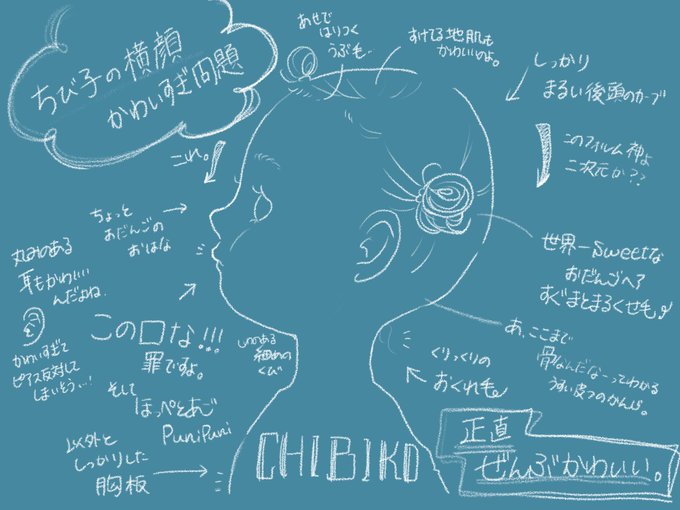 ちび子の横顔
かわいすぎ問題
あせで
はりつく
うぶ毛…
すけてる地肌も
かわいいのよ。
しっかり
まるい後頭のカーブ
これ。
このフィルム神よ
二次元か??
ちょっと
おだんごの
おはな
世界一Sweetな
おだんごヘア
すぐまとまるくせ毛
丸みのある
耳もかわいい
んだよね
かわいすぎて
ピアス反対して
しまいそう…!
この口な!!!
罪ですよ。
しわのある
細めの
くび
あ、ここまで
骨なんだなーってわかる
うすい皮フのかんじ。
くりっくりの
おくれ毛
そして
ほっぺとあご
PuniPuni
以外と
しっかりした
胸板
CHIBIKO
正直
ぜんぶかわいい。